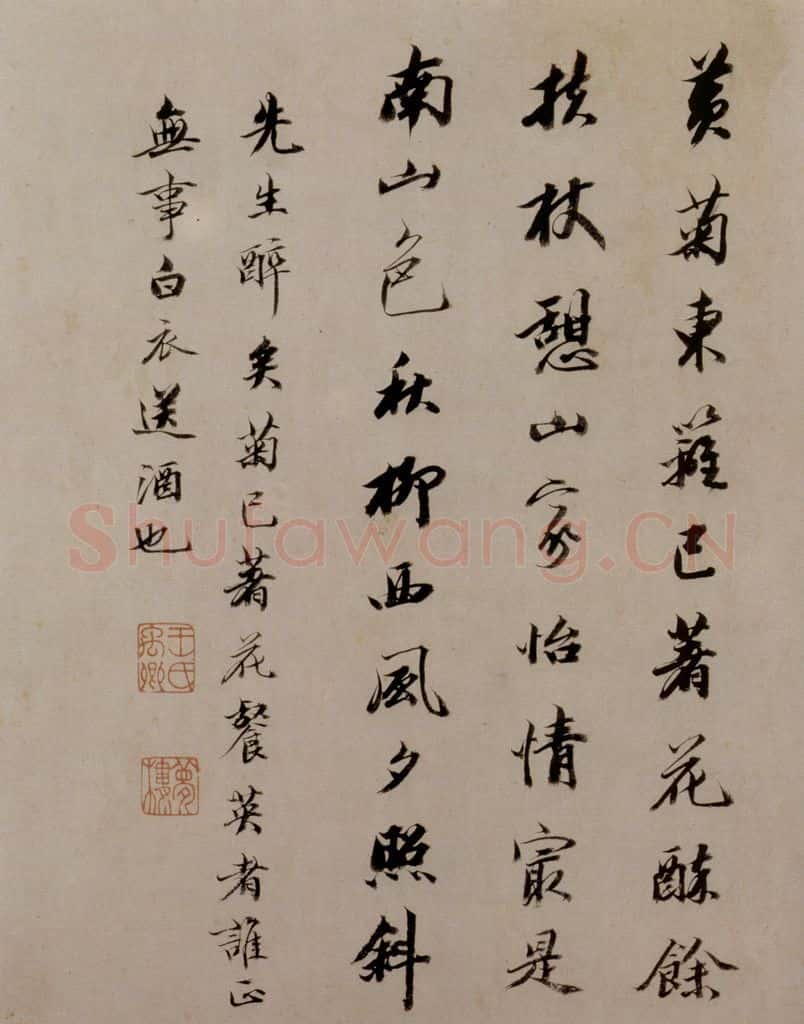 黃菊東籬已著花酥餘
扶杖憩山家怡情最是
南山色秋柳西風夕照斜
先生醉矣菊已著花餐英者誰正
無事白衣送酒也
王氏禹卿
夢樓
Shufawang.CN